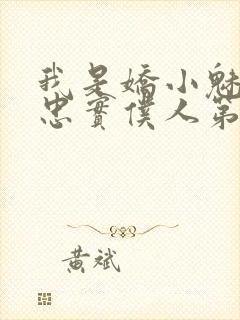 我是嬌小魅
忠實僕人第
黃斌